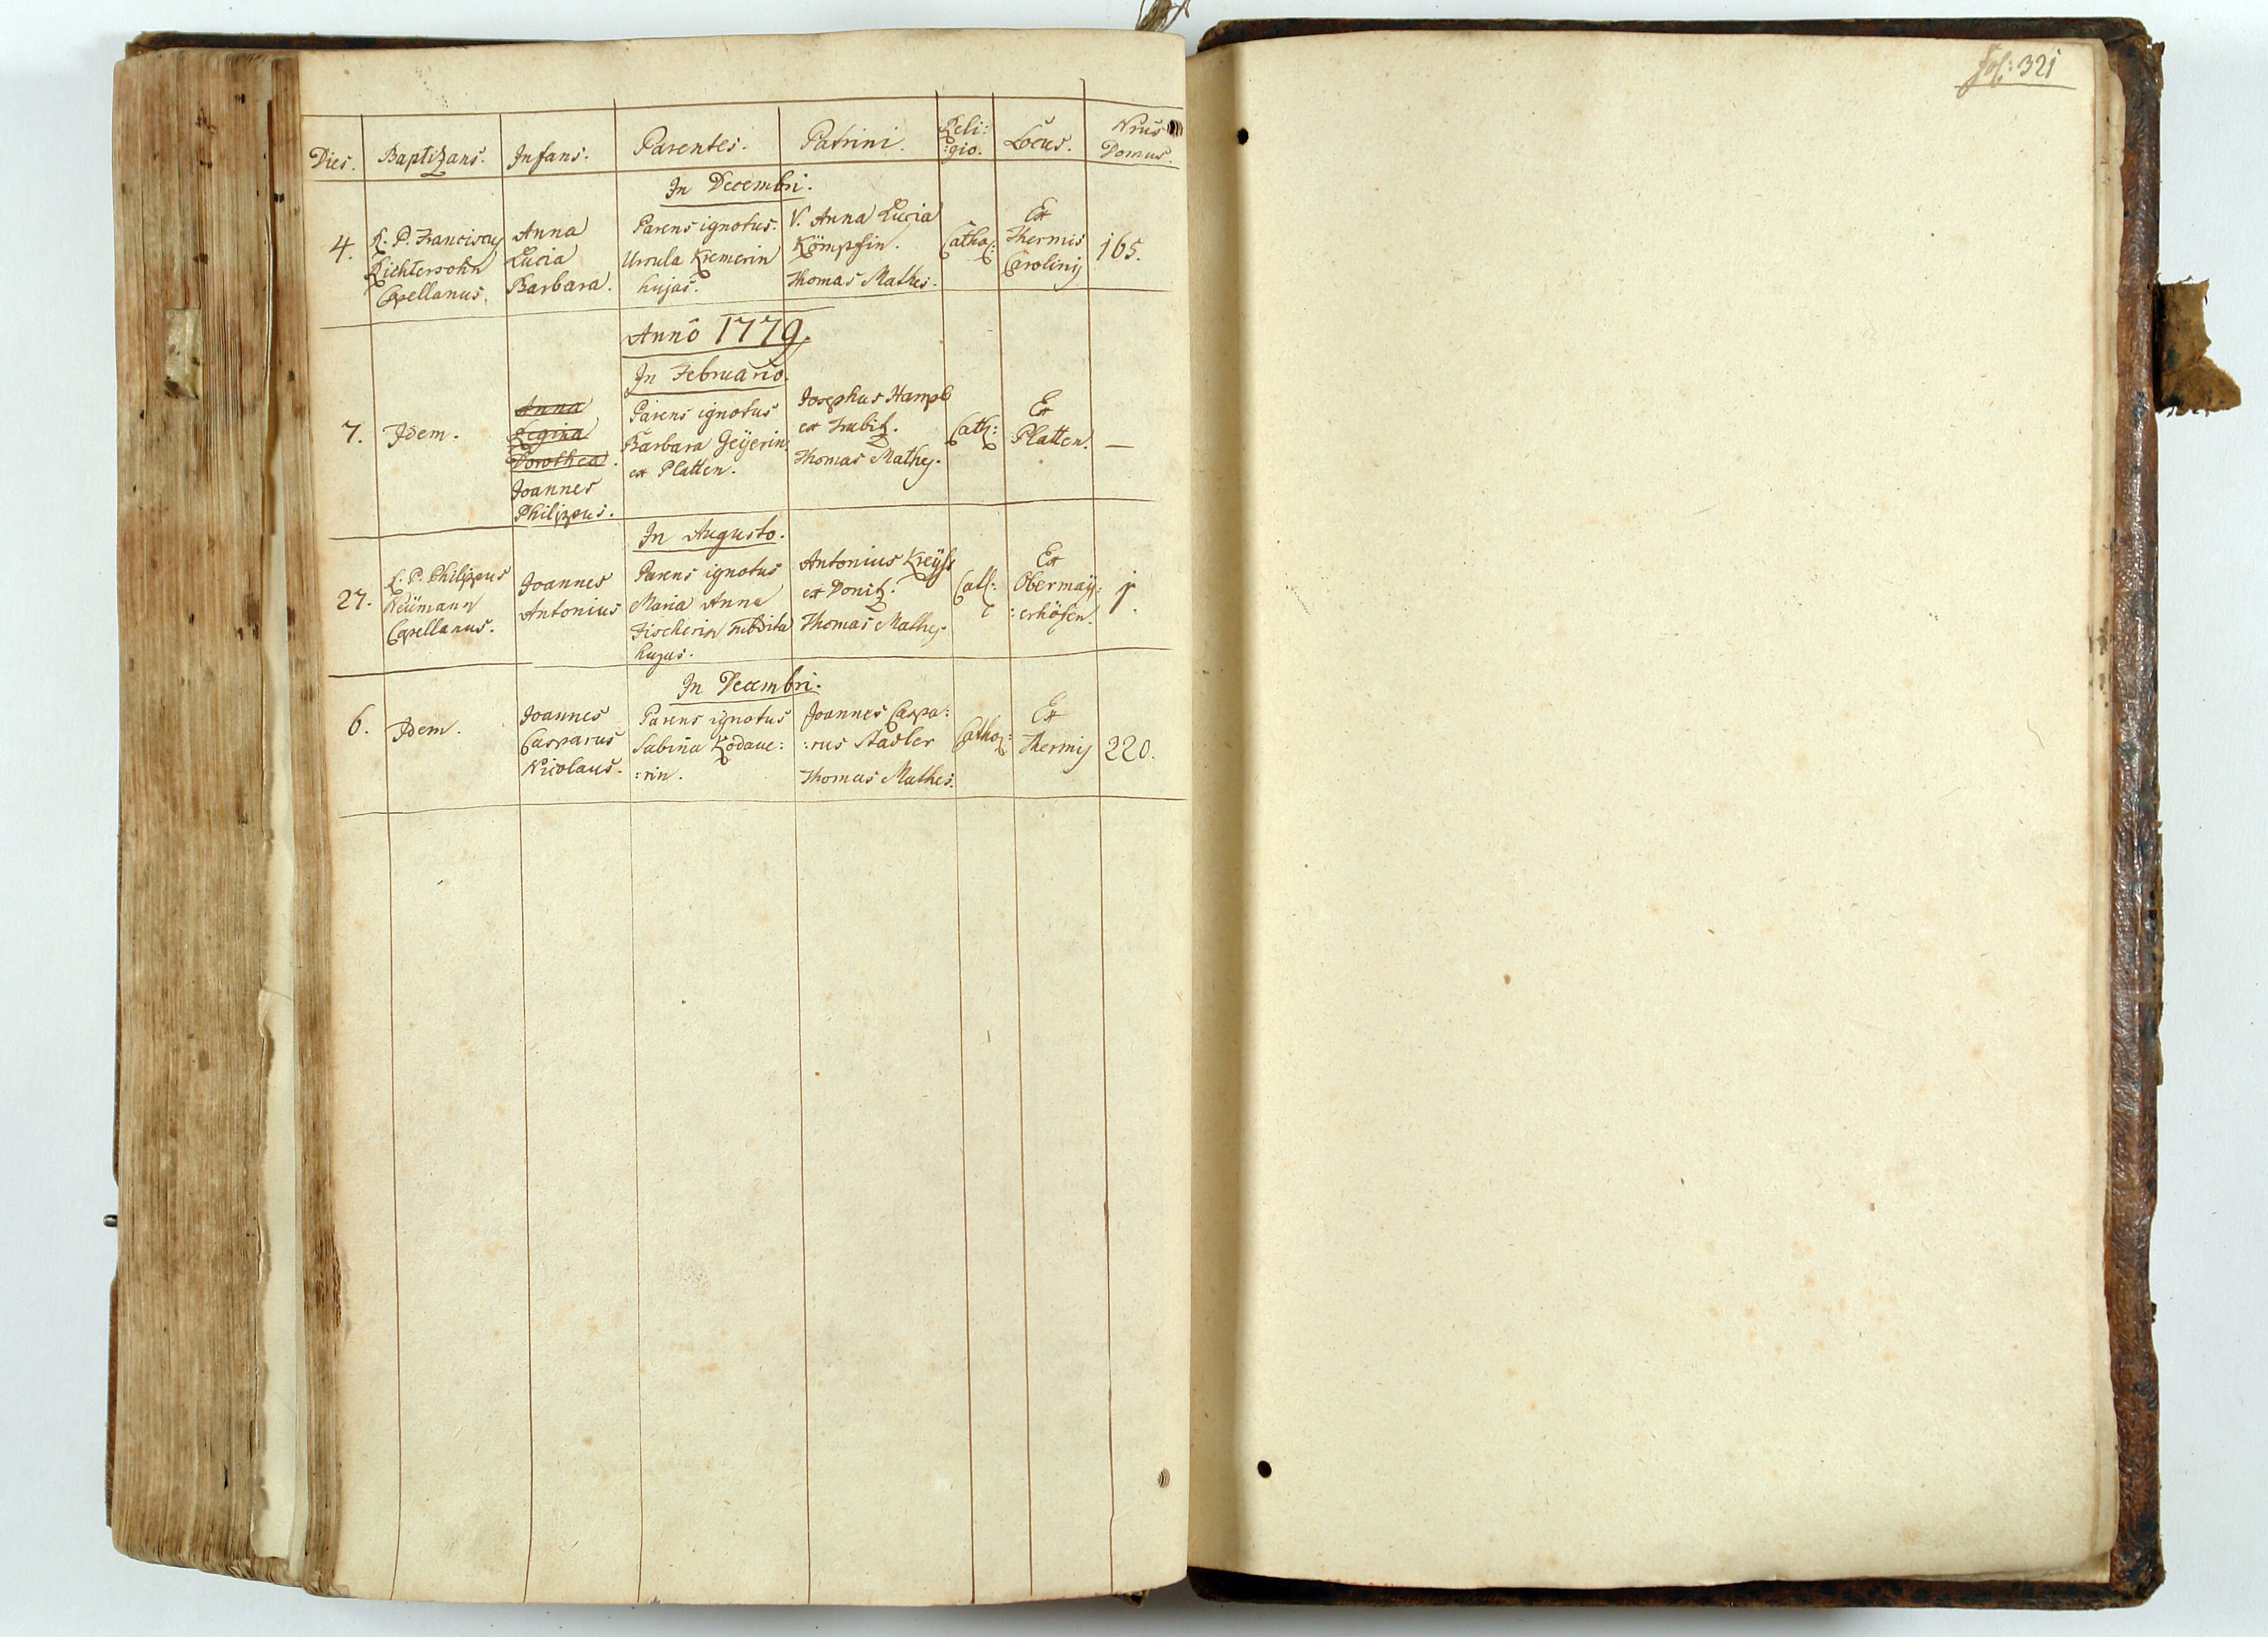 Fol: 321
Dies. Baptizans. Infans. Parentes. Patrini. Reli: Locus. Nrus
:gio. Domus.
In Decembri.
4. R. P. Franciscus Anna Parens ignotus. V. Anna Lucia Catho: Ex 165.
Richtersohn Lucia Ursula Kremerin Kömpfin. Thermis
Capellanus. Barbara. hujas. Thomas Mathes. Carolinis
Anno 1779.
In Februario.
7. Idem. Anna Parens ignotus Josephus Hampl Cath: Ex —
Regina Barbara Geÿerin ex Trabitz. Platten.
Dorothea. ex Platten. Thomas Mathes.
Joannes
Philippus.
In Augusto.
27. R. P. Philippus Joannes Parens ignotus Antonius Kreÿss Cath: Ex 1.
Neümann Antonius Maria Anna ex Donitz. Obermaÿ:
Capellanus. Fischerin subdita Thomas Mathes. :erhöfen.
hujus.
In Decembri.
6. Idem. Joannes Parens ignotus Joannes Caspa: Catho: Ex 220.
Casparus Sabina Kodaue: :rus Stadler Thermis
Nicolaus. :rin. Thomas Mathes.